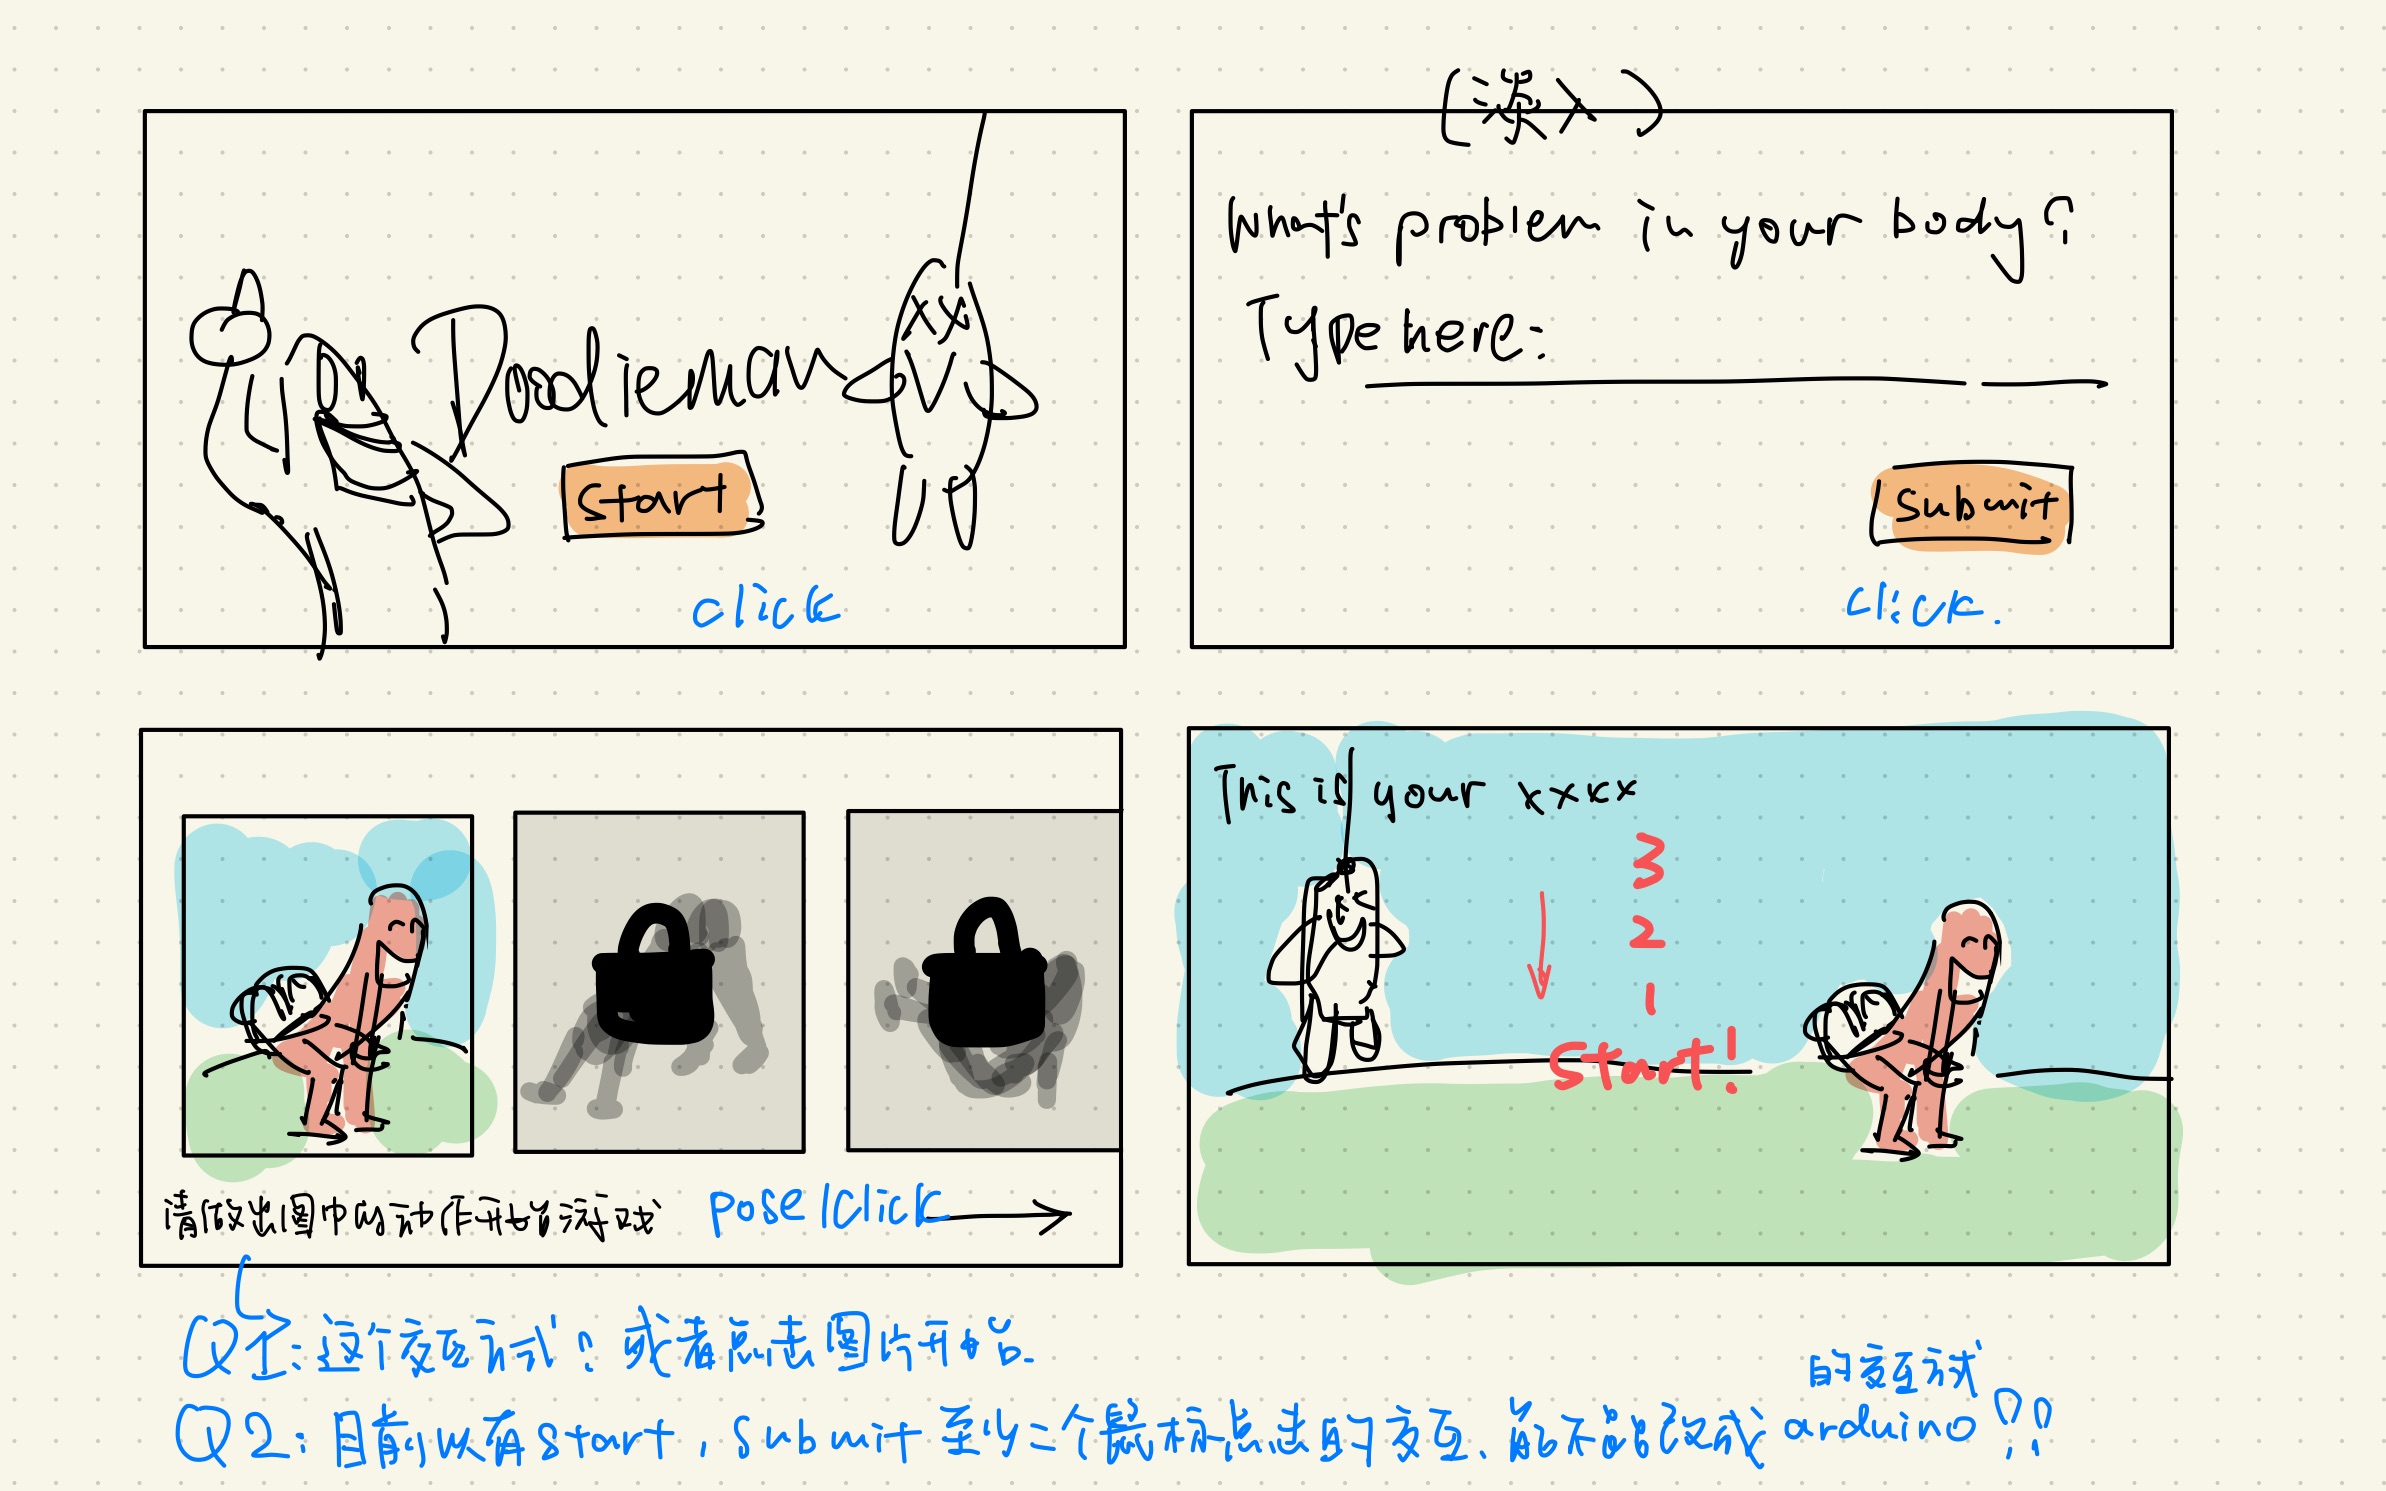 Doodieman
Start
click
(深入)
What's problem in your body?
Type here:
Submit
click.
请做出图中的动作开始游戏
pose/click
This is your xxxx
3
2
1
Start!
Q1: 这个交互方式? 或者点击图片开始.
的交互方式
Q2: 目前只有start, submit 至少二个鼠标点击的交互、能不能改成 arduino??